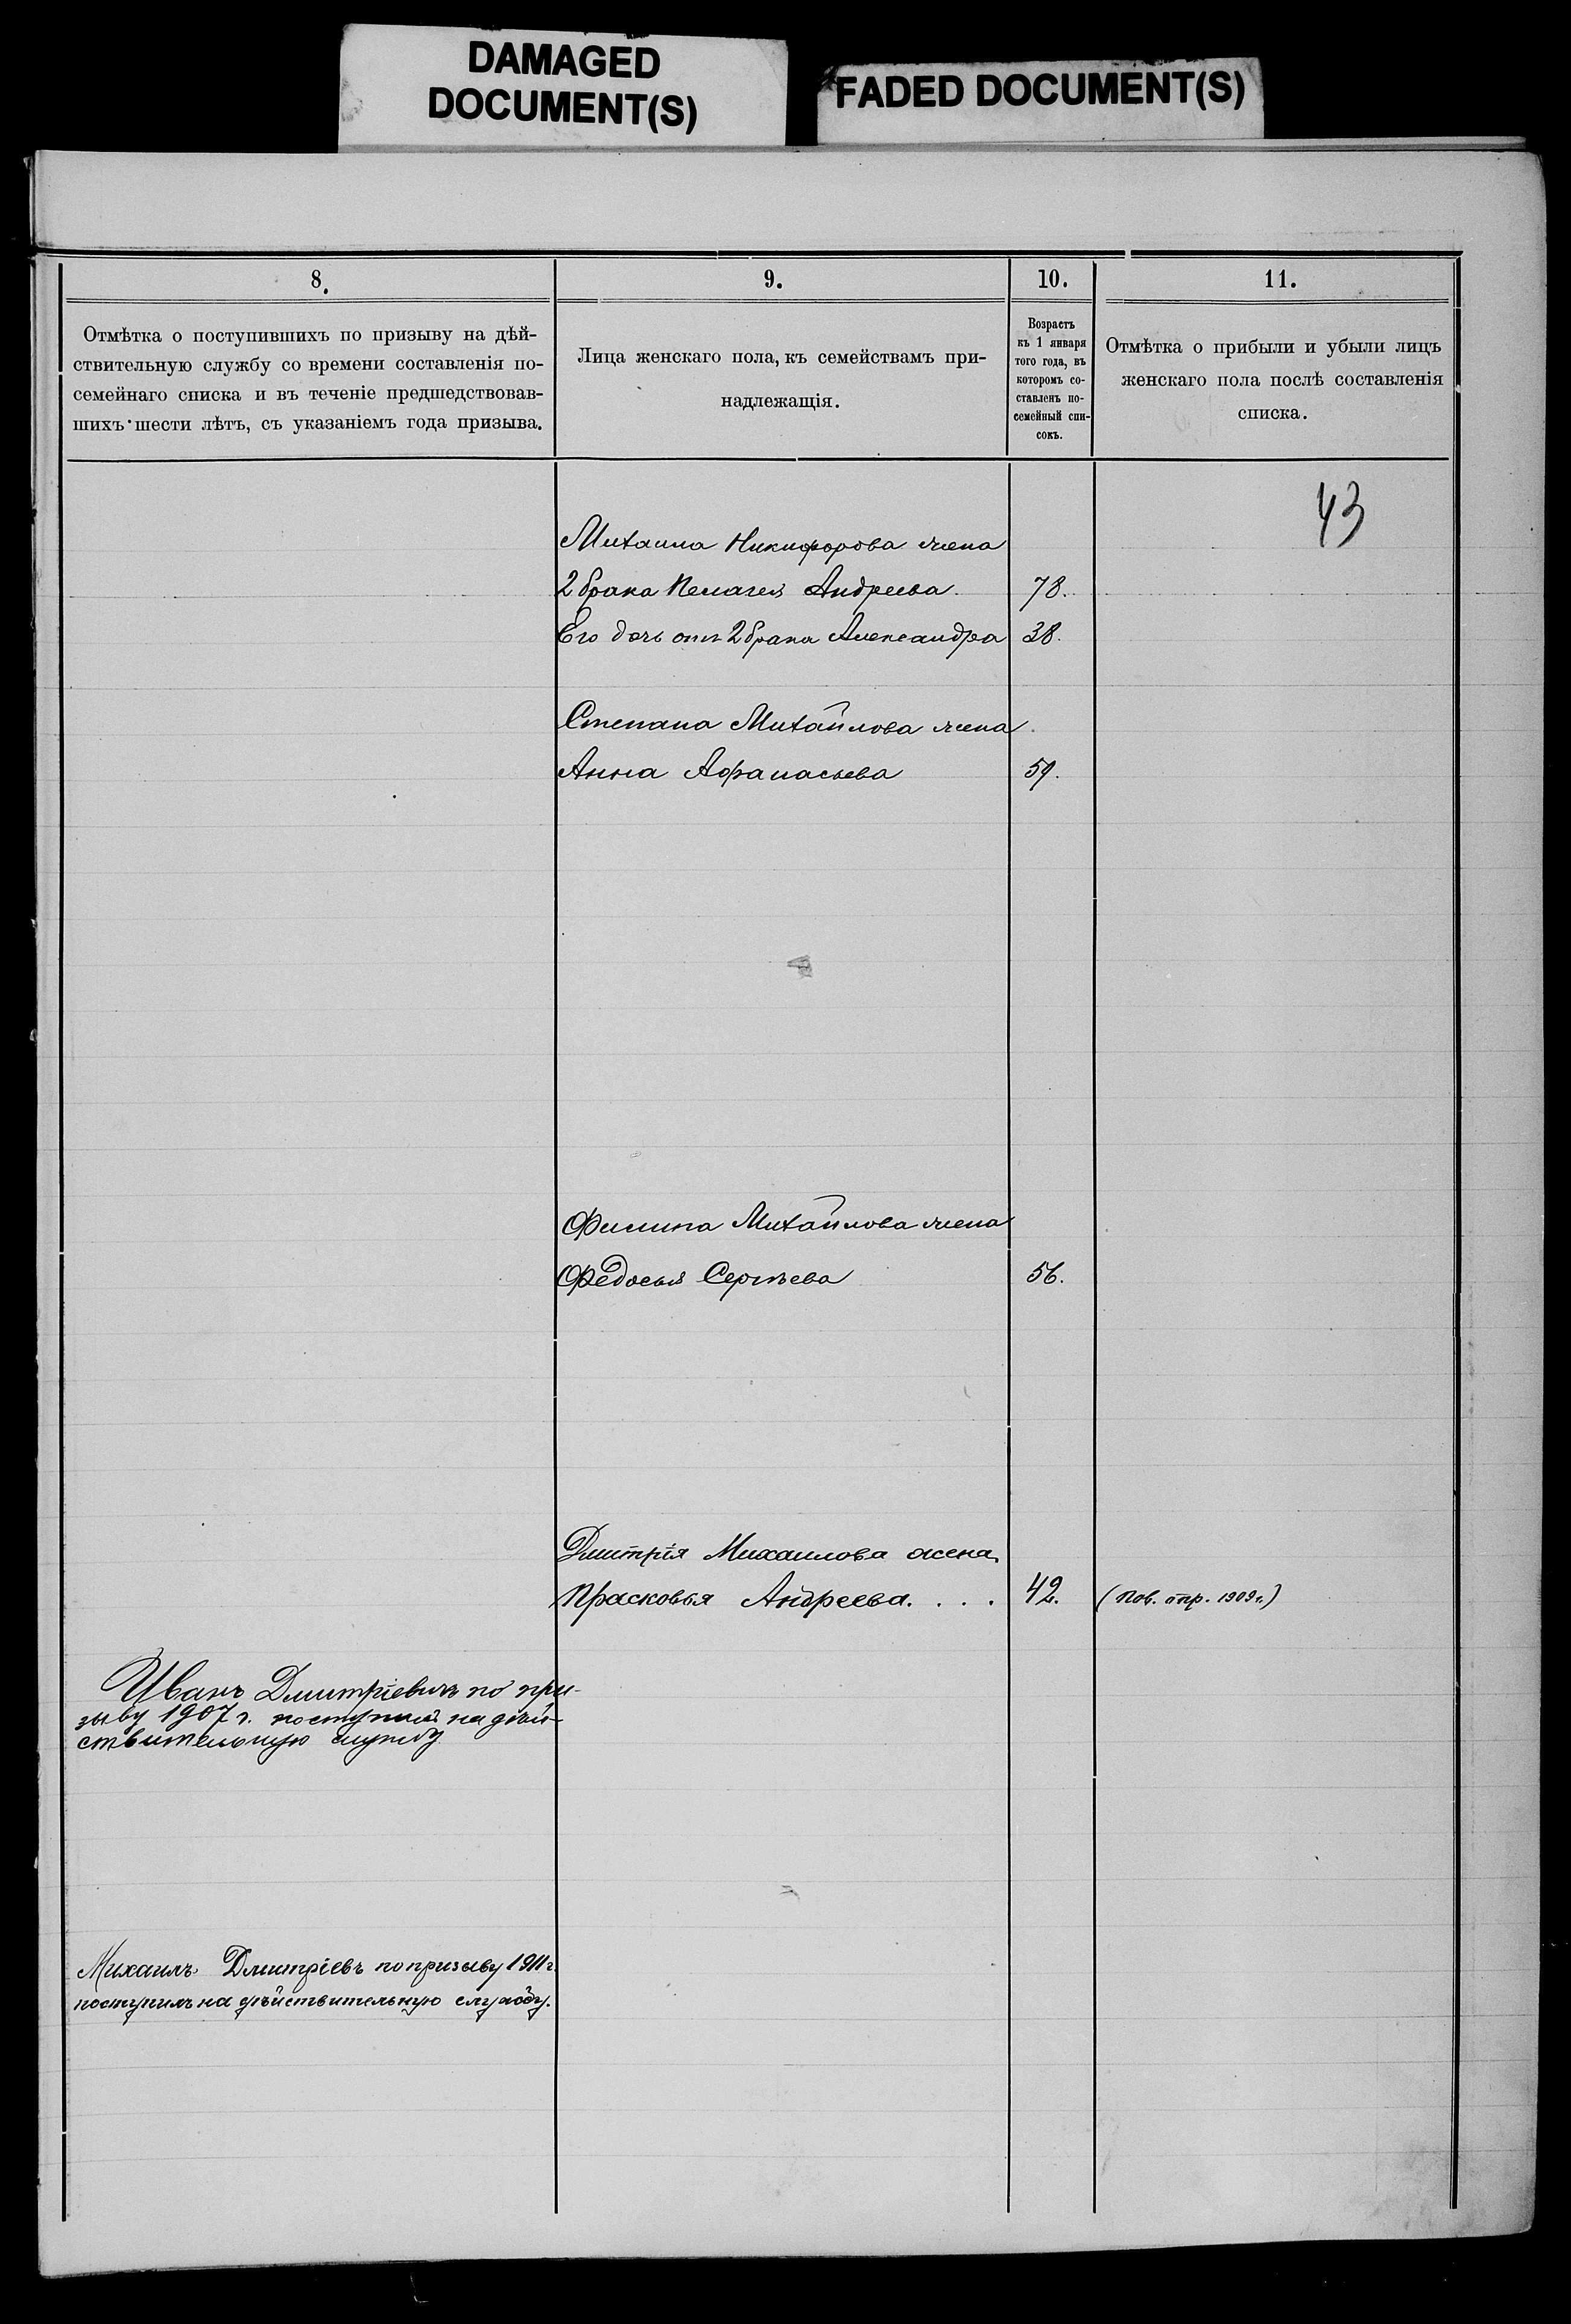 DAMAGED
DOCUMENT(S)
FADED DOCUMENT(S)
8.
Отмѣтка о поступившихъ по призыву на дѣй-
ствительную службу со времени составленія по-
семейнаго списка и въ теченіе предшедствовав-
шихъ шести лѣтъ, съ указаніемъ года призыва.
9.
Лица женскаго пола, къ семействамъ при-
надлежащія.
10.
Возрастъ
къ 1 января
того года, въ
которомъ со-
ставленъ по-
семейный спи-
сокъ.
11.
Отмѣтка о прибыли и убыли лицъ
женскаго пола послѣ составленія
списка.
43
Михаила Никифорова жена
2 брака Пелагея Андреева. 78.
Его дочь отъ 2 брака Александра 38.
Степана Михайлова жена
Анна Афанасьева 59.
Филипа Михайлова жена
Федосья Сергѣева 56.
Дмитрія Михаилова жена
Прасковья Андреева. . . . 42. (Пов. опр. 1909 г.)
Иванъ Дмитріевичъ по при-
зыву 1907 г. поступилъ на дѣй-
ствительную службу
Михаилъ Дмитріевъ по призыву 1911 г.
поступилъ на дѣйствительную службу.